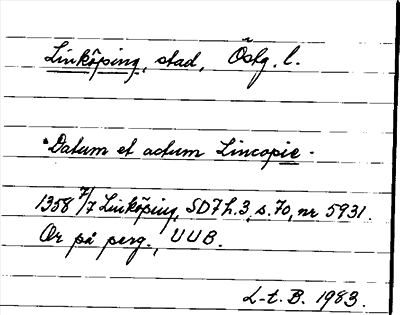 Linköping, stad, Östg. l.
"Datum et actum Lincopie.
1358 7/7 Linköping, SD7h.3, s.70, nr 5931.
Or på perg., UUB.
L-t. B. 1983.